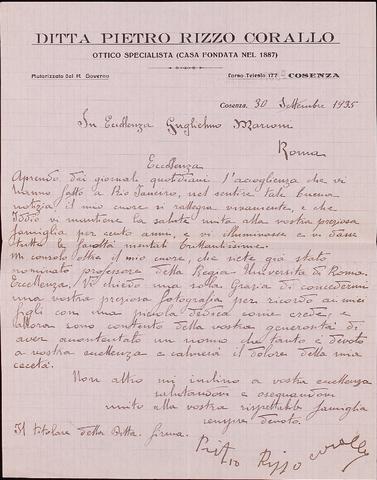 DITTA PIETRO RIZZO CORALLO
OTTICO SPECIALISTA (CASA FONDATA NEL 1887)
Autorizzato dal R. Governo
Corso Telesio 177 - COSENZA
Cosenza, 30 Settembre 1935
Sn Eccellenza Guglielmo Marconi
Roma
Eccellenza
Aprendo dai giornali quotidiani l'accoglienza che vi
hanno fatto a Rio Janeiro, nel sentire tale buona
notizia il mio cuore si rallegra vivamente, e che
Iddio vi mantiene la salute unita alla vostra preziosa
famiglia per cento anni, e vi illuminasse e vi dasse
tutte le facoltà mentali brillantissime.
Mi consolo oltre il mio cuore, che siete già stato
nominato professore della Regia Università di Roma.
Eccellenza, Vi chiedo una sola Grazia di concedermi
una vostra preziosa fotografia per ricordo ai miei
figli con una piccola dedica come crede, e
allora sono contento della vostra generosità di
aver accontentato un uomo che tanto è devoto
a vostra eccellenza e calmerà il dolore della mia
cecetà.
Non altro mi inclino a vostra eccellenza
salutandovi e osequandovi
unito alla vostra rispettabile famiglia
sempre devoto.
Il titolare della Ditta. firma.
Pietro Rizzo Corallo